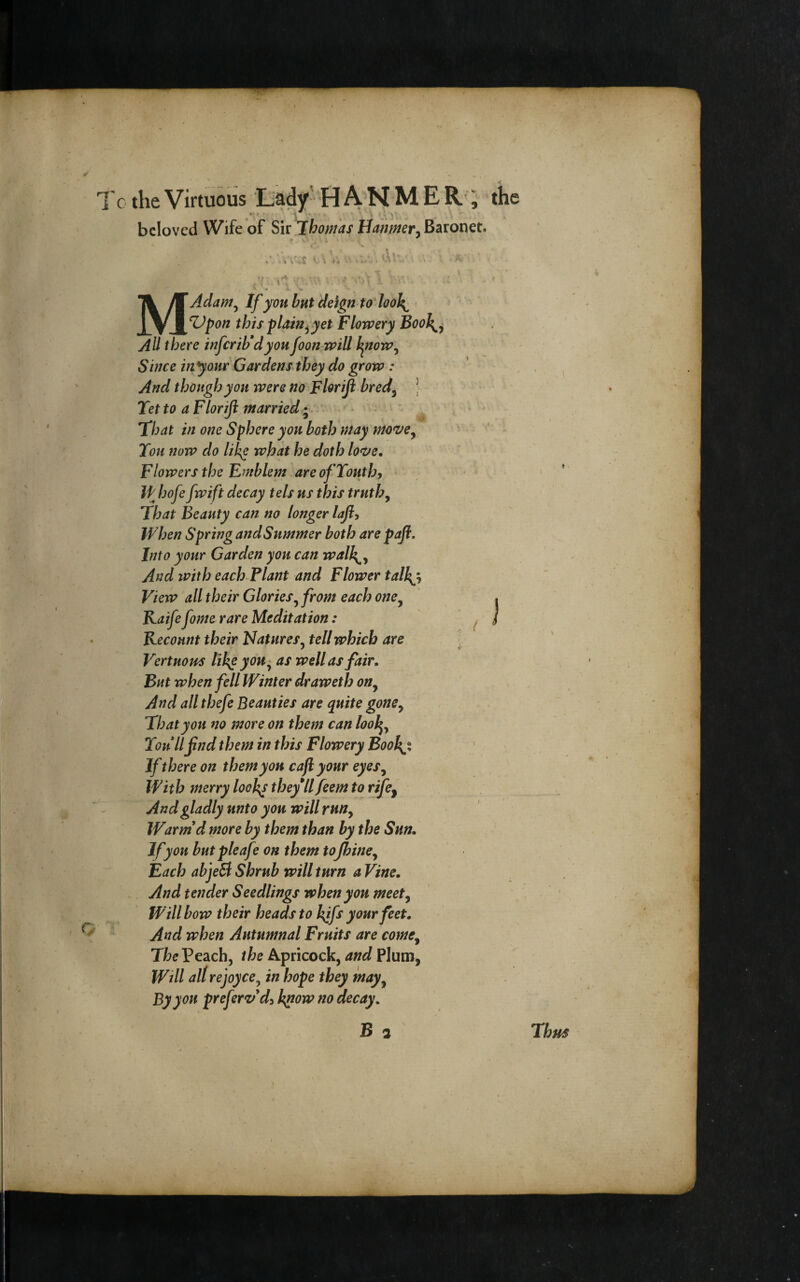 To the Virtuous Lady HANMER; the
beloved Wife of Sir Thomas Hanmer, Baronet.
MAdam, If you but deign to look
Upon this plain, yet Flowery Book,
All there inſcrib'd you ſoon will know,
Since in your Gardens they do grow:
And though you were no Floriſt bred,
Yet to a Floriſt married;
That in one Sphere you both may move,
You now do like what he doth love.
Flowers the Emblem are of Youth,
Whoſe ſwift decay tels us this truth,
That Beauty can no longer laſt,
When Spring and Summer both are paſt.
Into your Garden you can walk,
And with each Plant and Flower talk;
View all their Glories, from each one,
Raiſe ſome rare Meditation:
Recount their Natures, tell which are
Vertuous like you, as well as fair.
But when fell Winter draweth on,
And all theſe Beauties are quite gone,
That you no more on them can look,
You'll find them in this Flowery Book:
If there on them you caſt your eyes,
With merry looks they'll ſeem to riſe,
And gladly unto you will run,
Warm'd more by them than by the Sun.
If you but pleaſe on them to ſhine,
Each abject Shrub will turn a Vine.
And tender Seedlings when you meet,
Will bow their heads to kiſs your feet.
And when Autumnal Fruits are come,
The Peach, the Apricock, and Plum,
Will all rejoyce, in hope they may,
By you preſerv'd, know no decay.
B 2 Thus